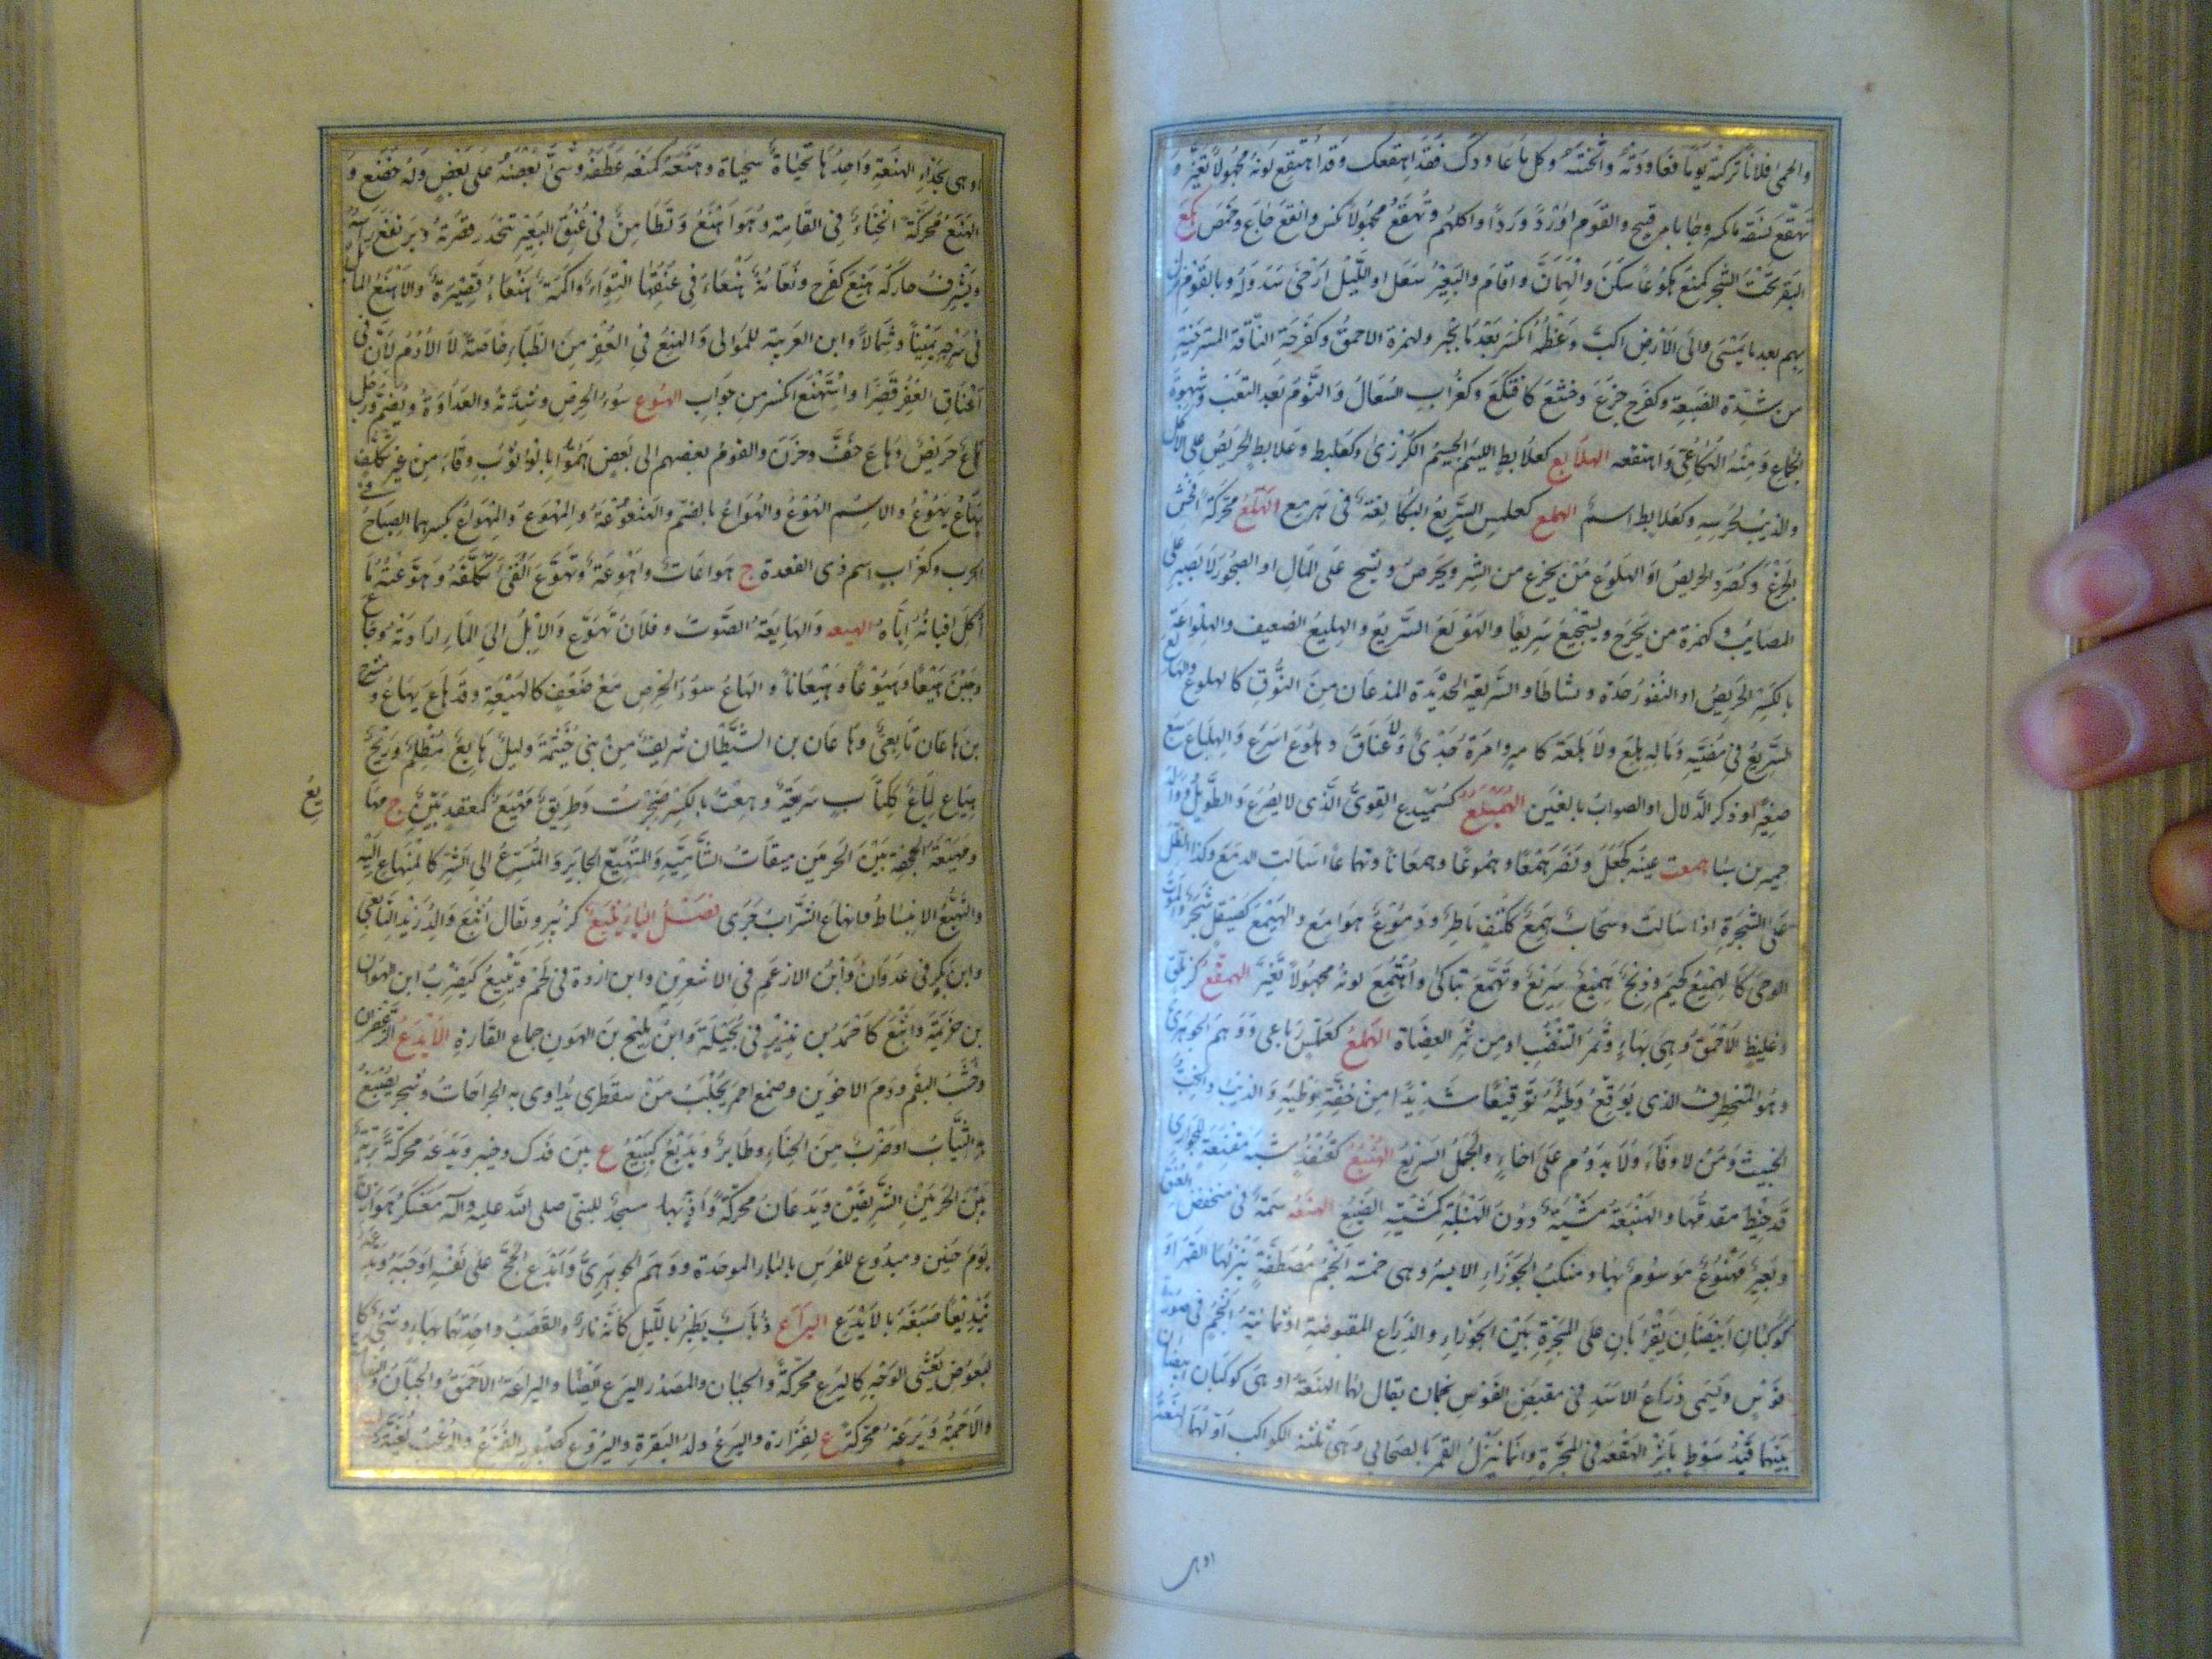 والحمى فلانا تركته يوما فعاودته واثخنته وكل ما عاودك فقد اهتقعك وقد اهتقع لونه مجهولا تغير و
تهقع سفه وتكبر وجا بامر قبيح والقوم اوردوا وردا واكلهم وتهقع مجهولا نكس وانهقع جاع وخمص هكع
البقر تحت الشجر كمنع هكوعا سكن واطمان واقام والبعير سعل او الليل ارخى سدوله وبالقوم نزل
بهم بعد ما يمشى والى الارض اكب وعظمه انكسر بعد ما انجبر والهمزة الاحمق وكفرحة الناقة المسترخية
من شدة الضبعة وكفرح جزع وخشع كاهتكع وكغراب السعال والنوم بعد التعب وشهوة
الجماع ومنه الهكاعى واهتقعه الهلابع كعلابط اللئيم الجسيم الكرزى وكعلبط وعلابط الحريص على الاكل
والذئب لحرصه وكعلابط اسم الهلمع كعملس السريع البكا لغة فى هرمع الهلع محركة افحش
الجزع وكصرد الحريص او الهلوع من يجزع من الشر ويحرص ويشح على المال او الضجور لا يصبر على
المصائب وكهمزة من يجزع ويستجيع سريعا والهولع السريع والهليع الضعيف والهلواعة
بالكسر الحريص او النفور حدة ونشاطا والسريعة الحديدة المذعان من النوق كالهلواع والهالع
السريع فى مضيه وماله هلع ولا هلعة كامر وامرة جدى ولا عناق وهلوع اسرع والهلياع سبع
صغير او ذكر الدلال او الصواب بالغين الهمبلع كسميدع القوى الذى لا يصرع والطويل ووالد
حمير بن سبا همعت عينه كجعل ونصر همعا وهموعا وهمعانا وتهماعا اسالت الدمع وكذا الطل
على الشجرة اذا سالت وسحاب همع ككتف ماطر ودموع هوامع والهيمع كصيقل شجر والموت
الوحى كالهميع كحيم وذبح هميع سريع وتهمع تباكى واهتمع لونه مجهولا تغير الهمقع كزملق
وعلبط الاحمق وهى بهاء وثمر التنضب او من ثمر العضاة الهملع كعملس رباعى ووهم الجوهرى
وهو المتخطرف الذى يوقع وطئه توقيعا شديدا من خفة وطئه والذئب والخب
الخبيث ومن لا وفاء ولا يدوم على اخاء والجمل السريع الهنبع كقنفذ شبه مقنعة للجوارى
قد خيط مقدمها والهنبعة مشية دون الهنبلة كمشية الضبع الهنعة سمة فى منخفض العنق
وبعير مهنوع موسوم بها ومنكب الجوزاء الايسر وهى خمسة انجم مصطفة ينزلها القمر او
كوكبان ابيضان يقترنان على المجرة بين الجوزاء والذراع المقبوضة او ثمانية انجم فى صورة
قوس ويسمى ذراع الاسد فى مقبض القوس نجمان يقال لهما الهنعة او هى كوكبان ابيضان
بينهما قيد سوط باثر الهقعة فى المجرة وانما ينزل القمر بالتحايى وهى ثلثة الكواكب اولهما الهنعة
اوهى
اوهى بحذاء الهنعة واحدها تحياة تحياة وهنعه كمنعه عطفه وثنى بعضه على بعض وله خضع و
الهنع محركة انحناء فى القامة وهو اهنع وتطامن فى عنق البعير تنحدر قصرته ويرتفع راسه
ويشرف حاركه هنع كفرح ونعامة هنعاء فى عنقها التواء واكمة هنعاء قصيرة والاهنع المائل
فى سرجه يمينا وشمالا وابن العربية للموالى والهنع فى العفر من الظباء خاصة لا الادم لان فى
اعناق العفر قصرا واستهنع انكسر من جواب الهوع سوء الحرص وشدته والعداوة ويضم ورجل
هاع حريص وهاع خف وحزن والقوم بعضهم الى بعض هموا بالوثوب وقاء من غير تكلف
يهاع يهوع والاسم الهوع والهواع بالضم والهيعوعة والمهوع والمهواع بكسرهما الصياح فى
الحرب وكغراب اسم ذى القعدة ج هواعات واهوعة وتهوع القئ تكلفه وهوعته ما
اكل اقياته اياه الهيعه والهايعة الصوت وفلان تهوع والابل الى الماء ارادته وجاع
وجبن هيعا وهيوعا وهيعانا والهاع سوء الحرص مع ضعف كالهيعة وقد هاع يهاع ومشرح
بن هاعان تابعى وهاعان بن الشيطان شريف من بنى خيثمة وليل هايع مظلم وريح
هياع لياع ككتاب سريعة وهعت بالكسر ضجرت وطريق مهيع كمقعد بين ج مها
يع
ومهيعة الجحفة بين الحرمين ميقات الشاميه والمتهيع الجاير والمتسرع الى الشر كالمنهاع اليه
والتهيع الانبساط وانهاع السراب جرى فصل الياء يثيع كزبير ويقال اثيع والد زيد التابعى
وابن بكر فى عدوان وابن الازعم فى الاشعرين وابن اروة فى لخم ويثيع كيضرب ابن الهون
بن خزيمة واثيع كاحمد بن نذير فى بجيلة وابن مليح بن الهون جماع القارة الايدع الزعفران
وخشب البقم ودم الاخوين وصمغ احمر يجلب من سقطرى يداوى به الجراحات وشجر يصبغ
به الثياب او ضرب من الحناء وطائر ويديع كيبيع ع بين فدك وخيبر ويدعه محركة برية
بين الحرمين الشريفين ويدعان محركة واد بها مسجد للنبى صلى الله عليه وآله معسكر هوازن
يوم حنين وميدوع للفرس بالباء الموحدة ووهم الجوهرى وايدع الحج على نفسه اوجبه ويدعه
تيديعا صبغه بالايدع اليراع ذباب يطير بالليل كانه نار والقصب واحدتهما بهاء وشئ كا
لبعوض يغشى الوجه كاليرع محركة والجبان والمصدر اليرع ايضا واليراعة الاحمق والجبان
والاجمة ويرعة محركة ع لفزارة واليرع ولد البقرة واليروع كصبور الفزع والرعب لغية